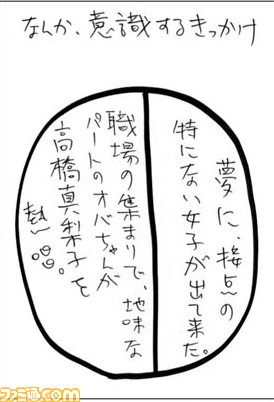 なんか、意識するきっかけ
夢に、接点の
特にない女子が出て来た。
職場の集まりで、地味な
パートのオバちゃんが
高橋真梨子を
熱〜
ファミ通.com